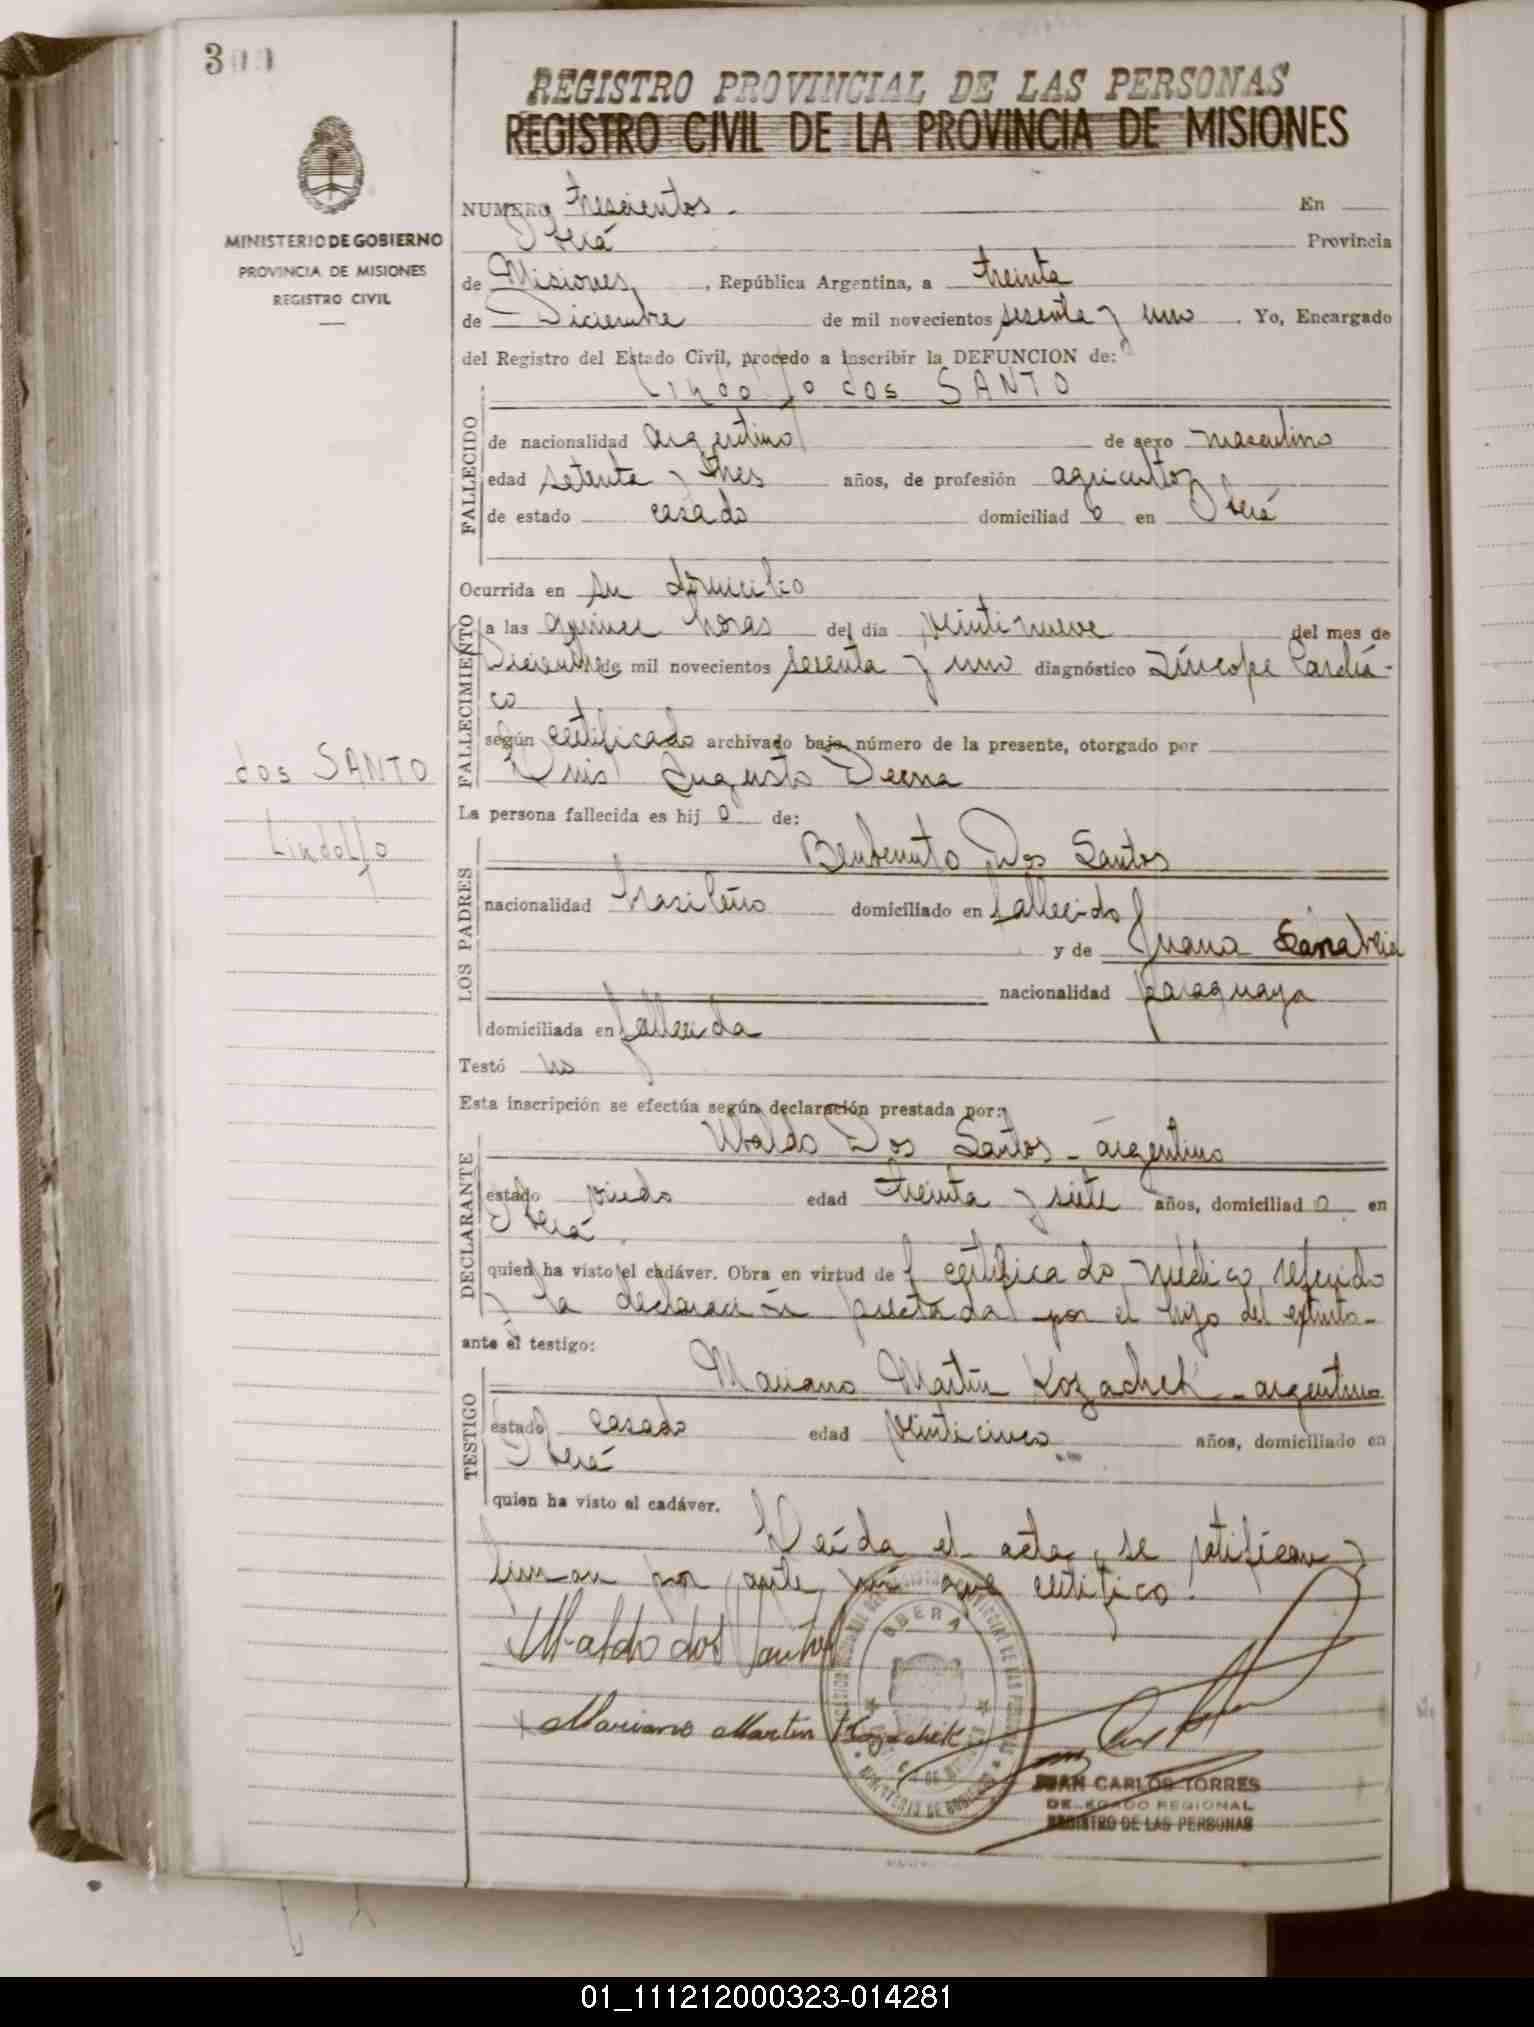 300
REGISTRO PROVINCIAL DE LAS PERSONAS
REGISTRO CIVIL DE LA PROVINCIA DE MISIONES
MINISTERIO DE GOBIERNO
PROVINCIA DE MISIONES
REGISTRO CIVIL
NUMERO trescientos. En
Oberá Provincia
de Misiones, República Argentina, a treinta
de Diciembre de mil novecientos sesenta y uno. Yo, Encargado
del Registro del Estado Civil, procedo a inscribir la DEFUNCION de:
Lindolfo dos SANTO
FALLECIDO
de nacionalidad argentino de sexo masculino
edad setenta y tres años, de profesión agricultor
de estado casado domiciliad o en Oberá
FALLECIMIENTO
Ocurrida en su domicilio
a las quince horas del día veintinueve del mes de
Diciembre de mil novecientos sesenta y uno diagnóstico Síncope Cardía-
co
según certificado archivado bajo número de la presente, otorgado por
Luis Augusto Derna
dos SANTO
Lindolfo
La persona fallecida es hij o de:
LOS PADRES
Benbenuto Dos Santos
nacionalidad brasileño domiciliado en fallecido
y de Juana Sanabria
nacionalidad paraguaya
domiciliada en fallecida
Testó no
Esta inscripción se efectúa según declaración prestada por:
DECLARANTE
Ubaldo Dos Santos - argentino
estado viudo edad treinta y siete años, domiciliad o en
Oberá
quien ha visto el cadáver. Obra en virtud de certificado médico referido
y la declaración prestada por el hijo del extinto-
ante el testigo:
TESTIGO
Mariano Martin Kozachek - argentino
estado casado edad veinticinco años, domiciliado en
Oberá
quien ha visto el cadáver.
Leída el acta, se ratifican y
firman por ante mí que certifico.
Ubaldo dos Santos
OBERA
Mariano Martin Kozachek
JUAN CARLOS TORRES
DELEGADO REGIONAL
REGISTRO DE LAS PERSONAS
01_111212000323-014281